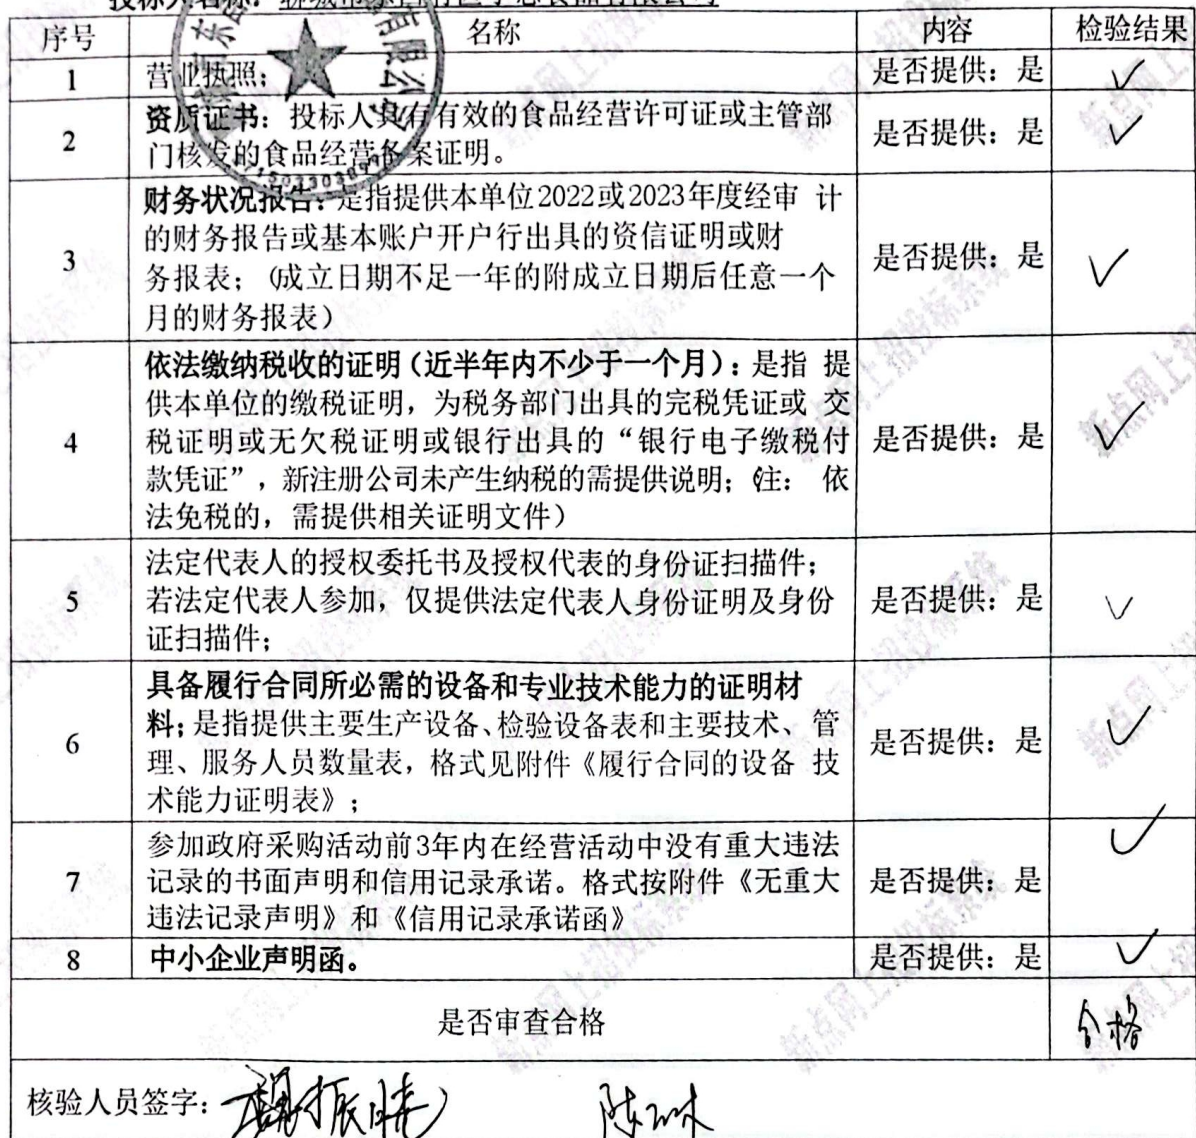 投标人名称：
序号 名称 内容 检验结果
1 营业执照； 是否提供：是 ✓
2 资质证书：投标人具有有效的食品经营许可证或主管部
门核发的食品经营备案证明。 是否提供：是 ✓
3 财务状况报告：是指提供本单位2022或2023年度经审 计
的财务报告或基本账户开户行出具的资信证明或财
务报表；（成立日期不足一年的附成立日期后任意一个
月的财务报表） 是否提供：是 ✓
4 依法缴纳税收的证明（近半年内不少于一个月）：是指 提
供本单位的缴税证明，为税务部门出具的完税凭证或 交
税证明或无欠税证明或银行出具的“银行电子缴税付
款凭证”，新注册公司未产生纳税的需提供说明；（注： 依
法免税的，需提供相关证明文件） 是否提供：是 ✓
5 法定代表人的授权委托书及授权代表的身份证扫描件；
若法定代表人参加，仅提供法定代表人身份证明及身份
证扫描件； 是否提供：是 ✓
6 具备履行合同所必需的设备和专业技术能力的证明材
料；是指提供主要生产设备、检验设备表和主要技术、 管
理、服务人员数量表，格式见附件《履行合同的设备 技
术能力证明表》； 是否提供：是 ✓
7 参加政府采购活动前3年内在经营活动中没有重大违法
记录的书面声明和信用记录承诺。格式按附件《无重大
违法记录声明》和《信用记录承诺函》 是否提供：是 ✓
8 中小企业声明函。 是否提供：是 ✓
是否审查合格 合格
核验人员签字：
新点网上招投标系统